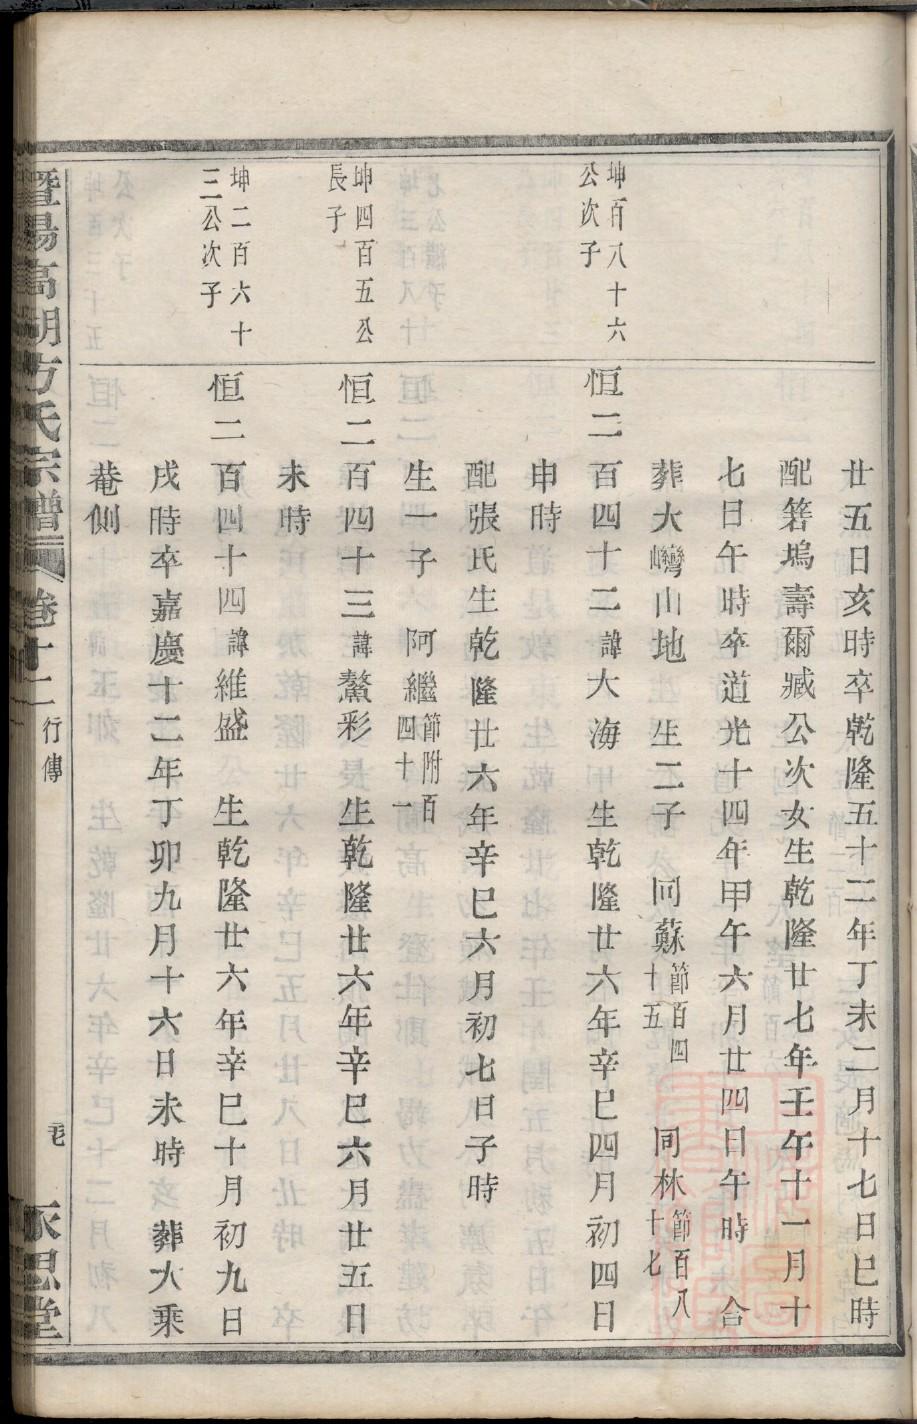 廿五日亥時卒乾隆五十二年丁未二月十七日巳時
配箬塢壽爾臧公次女生乾隆廿七年壬午十一月十
七日午時卒道光十四年甲午六月廿四日午時 合
葬大巒山地 生二子 同蘇節百四十五 同林節百八十七
坤百八十六公次子
恒二百四十二諱大海 生乾隆廿六年辛巳四月初四日
申時
配張氏生乾隆廿六年辛巳六月初七日子時
生一子 阿繼節附百四十一
坤四百五公長子
恒二百四十三諱鰲彩 生乾隆廿六年辛巳六月廿五日
未時
坤二百六十三公次子
恒二百四十四諱維盛 生乾隆廿六年辛巳十月初九日
戌時卒嘉慶十二年丁卯九月十六日未時 葬大乘
菴側
暨陽高湖方氏宗譜 卷十二 行傳 永思堂